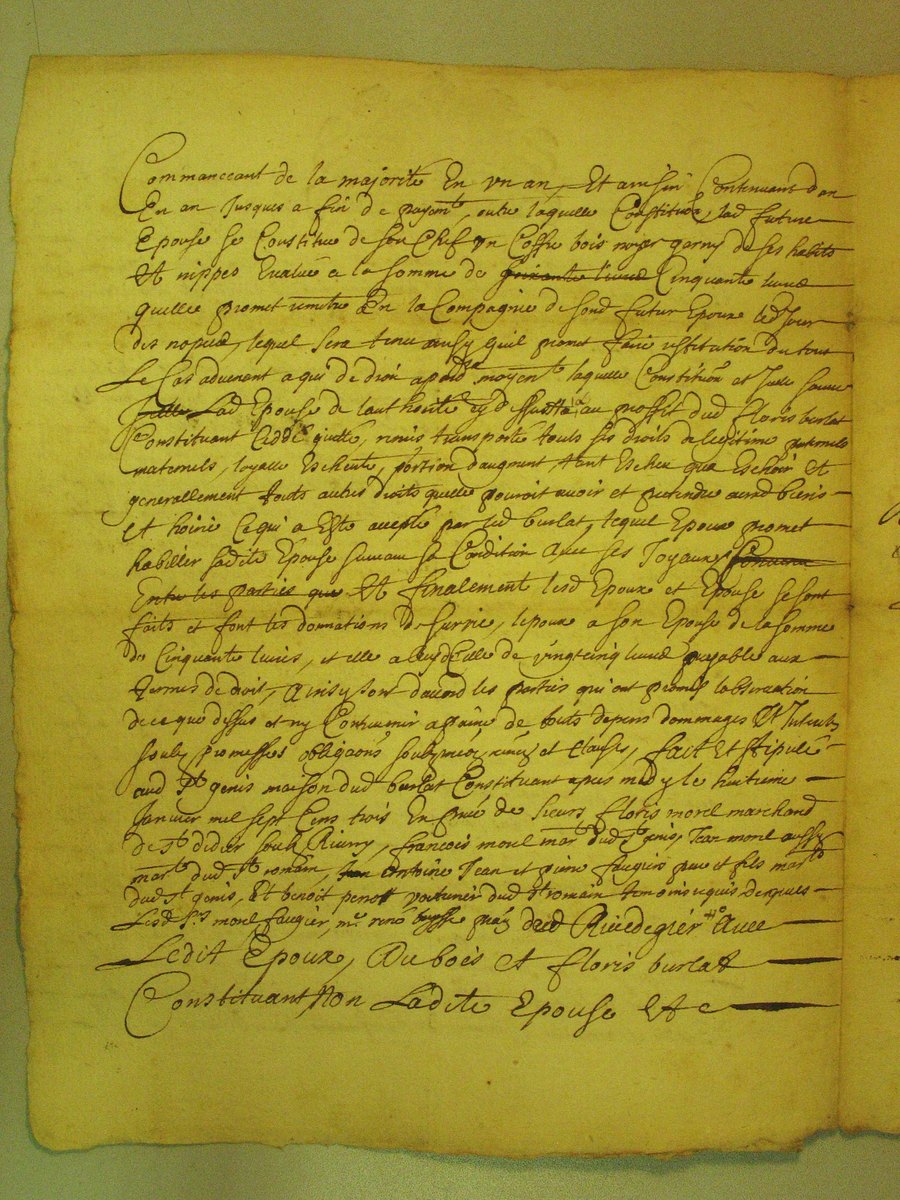 Commanceant de la majorité En vn an, Et ainsin Continuant dan
En an Jusques a fin de payemt, outre laquelle Constitution, lad future
Epouse se Constitue de son Chef vn Coffre bois noyer garny de ses habits
Et nippes Evalué a la somme de Cinquante livres
quelle promet remettre En la Compagnie de sond futur Epoux le Jour
des nopces, lequel sera tenu aussy quil promet faire restitution du tout
Le Cas advenent a qui de droit moyent laquelle Constitution et
Lad Epouse de lauthorité au proffit dud floris burlat
Constituant Ceddé quitte, remis transporté touts ses droits de legitime paternels
maternels, loyalle Escheute, portion daugment, tant Escheu que Eschoir Et
generallement touts autres droits quelle pouroit avoir et pretendre auxd biens
et hoirie Ce qui a Esté accepté par led burlat, lequel Epoux promet
habiller ladite Epouse suivant sa Condition Avec ses Joyaux,
Entre les parties que Et finalement lesd Epoux et Epouse se sont
faits et font les donnations de survie, lepoux a son Epouse de la somme
de Cinquante livres, et elle a de vingtcinq livres payable aux
termes de droit, Ainsy sont dacord les parties qui ont promis lobservation
de ce que dessus et ny Contrevenir a paine de touts depens dommages Et Interets
soubs promesses obligaons soubmions, renons et Clauses, fait Et stipulé
aud St genis maison dud burlat Constituant apres midy le huitieme
Janvier mil sept Cens trois En pnce de sieurs floris morel marchand
de St didier soub Riverry, francois morel mart dud St genis, Jean morel aussy
mart dud St romain, Antoine Jean et pierre faugier pere et fils marts
dud St genis, Et benoit perrot voiturier dud St romain temoins requis desquels
Lesd Srs morel faugier, Rivedegier Avec
Ledit Epoux, Dubois et floris burlat
Constituant Non Ladite Epouse Et C